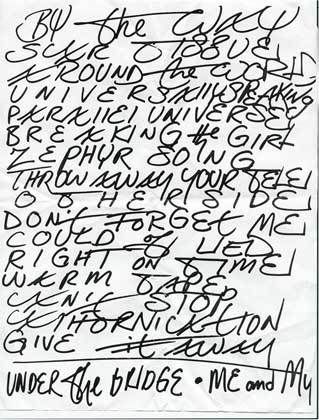 BY the WAY
SCAR TISSUE
AROUND the WORLD
UNIVERSALLY SPEAKING
PARALLEL UNIVERSE
BREAKING the GIRL
ZEPHYR SONG
THROW AWAY YOUR TELE
OTHERSIDE
DON'T FORGET ME
COULD of LIED
RIGHT ON TIME
WARM TAPE
CAN'T STOP
CALIFORNICATION
GIVE it AWAY
UNDER the BRIDGE • ME and My